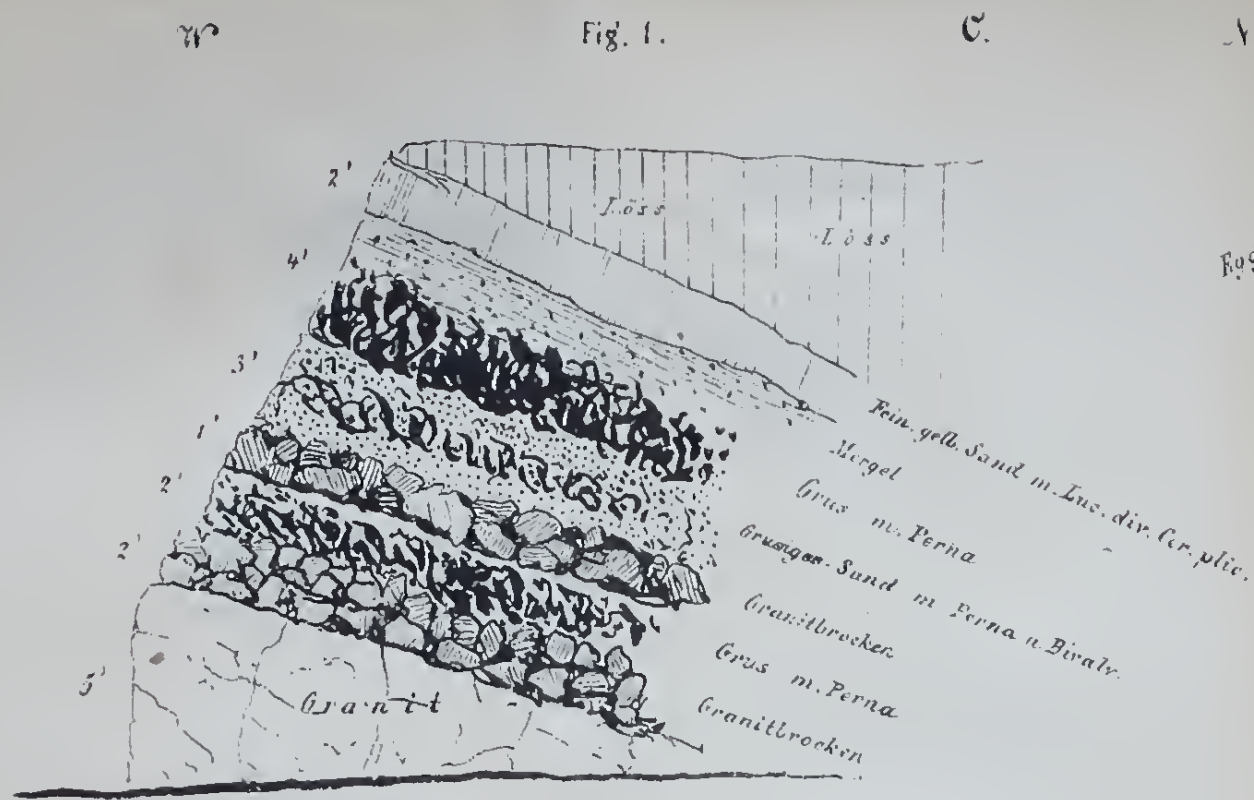 W Fig. 1. O.
2'
Löss
Löss
4'
3'
1'
2'
2'
5'
Fein. gelb. Sand m. Luc. div. Cer. plic.
Mergel
Grus m. Perna
Grusiger Sand m Perna u. Bivalv.
Granitbrocken
Grus m. Perna
Granitbrocken
Granit